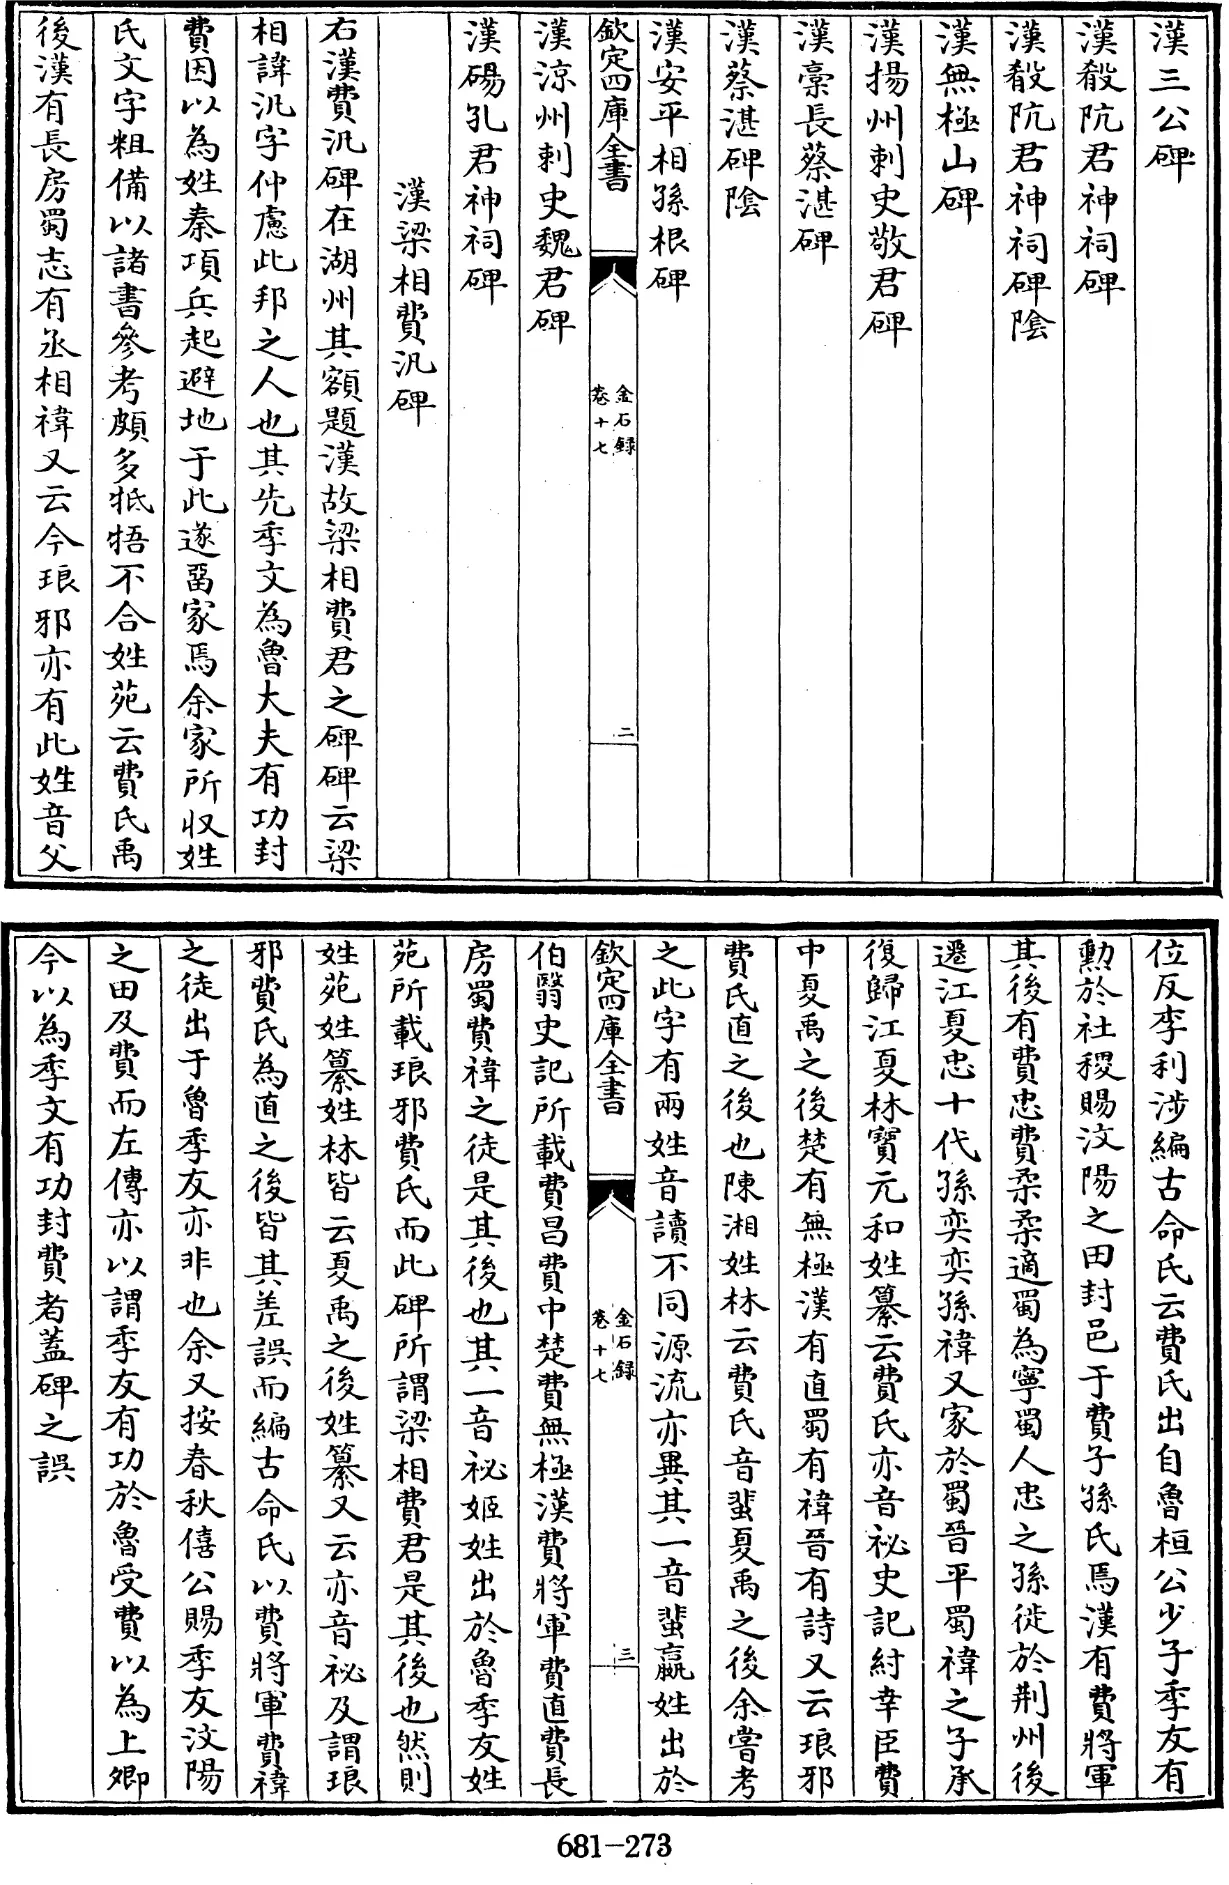 漢三公碑
漢殽阬君神祠碑
漢殽阬君神祠碑陰
漢無極山碑
漢揚州刺史敬君碑
漢槀長蔡湛碑
漢蔡湛碑陰
漢安平相孫根碑
欽定四庫全書
金石録
卷十七
二
漢涼州刺史魏君碑
漢碭孔君神祠碑
漢梁相費汎碑
右漢費汎碑在湖州其額題漢故梁相費君之碑碑云梁
相諱汎字仲慮此邦之人也其先季文為魯大夫有功封
費因以為姓秦項兵起避地于此遂畱家焉余家所收姓
氏文字粗備以諸書參考頗多牴牾不合姓苑云費氏禹
後漢有長房蜀志有丞相禕又云今琅邪亦有此姓音父
位反李利涉編古命氏云費氏出自魯桓公少子季友有
勲於社稷賜汶陽之田封邑于費子孫氏焉漢有費將軍
其後有費忠費柔柔適蜀為寧蜀人忠之孫徙於荆州後
遷江夏忠十代孫奕奕孫禕又家於蜀晉平蜀禕之子承
復歸江夏林寶元和姓纂云費氏亦音祕史記紂幸臣費
中夏禹之後楚有無極漢有直蜀有禕晉有詩又云琅邪
費氏直之後也陳湘姓林云費氏音蜚夏禹之後余嘗考
之此字有兩姓音讀不同源流亦異其一音蜚嬴姓出於
欽定四庫全書
金石録
卷十七
三
伯翳史記所載費昌費中楚費無極漢費將軍費直費長
房蜀費禕之徒是其後也其一音祕姬姓出於魯季友姓
苑所載琅邪費氏而此碑所謂梁相費君是其後也然則
姓苑姓纂姓林皆云夏禹之後姓纂又云亦音祕及謂琅
邪費氏為直之後皆其差誤而編古命氏以費將軍費禕
之徒出于魯季友亦非也余又按春秋僖公賜季友汶陽
之田及費而左傳亦以謂季友有功於魯受費以為上卿
今以為季文有功封費者蓋碑之誤
681-273